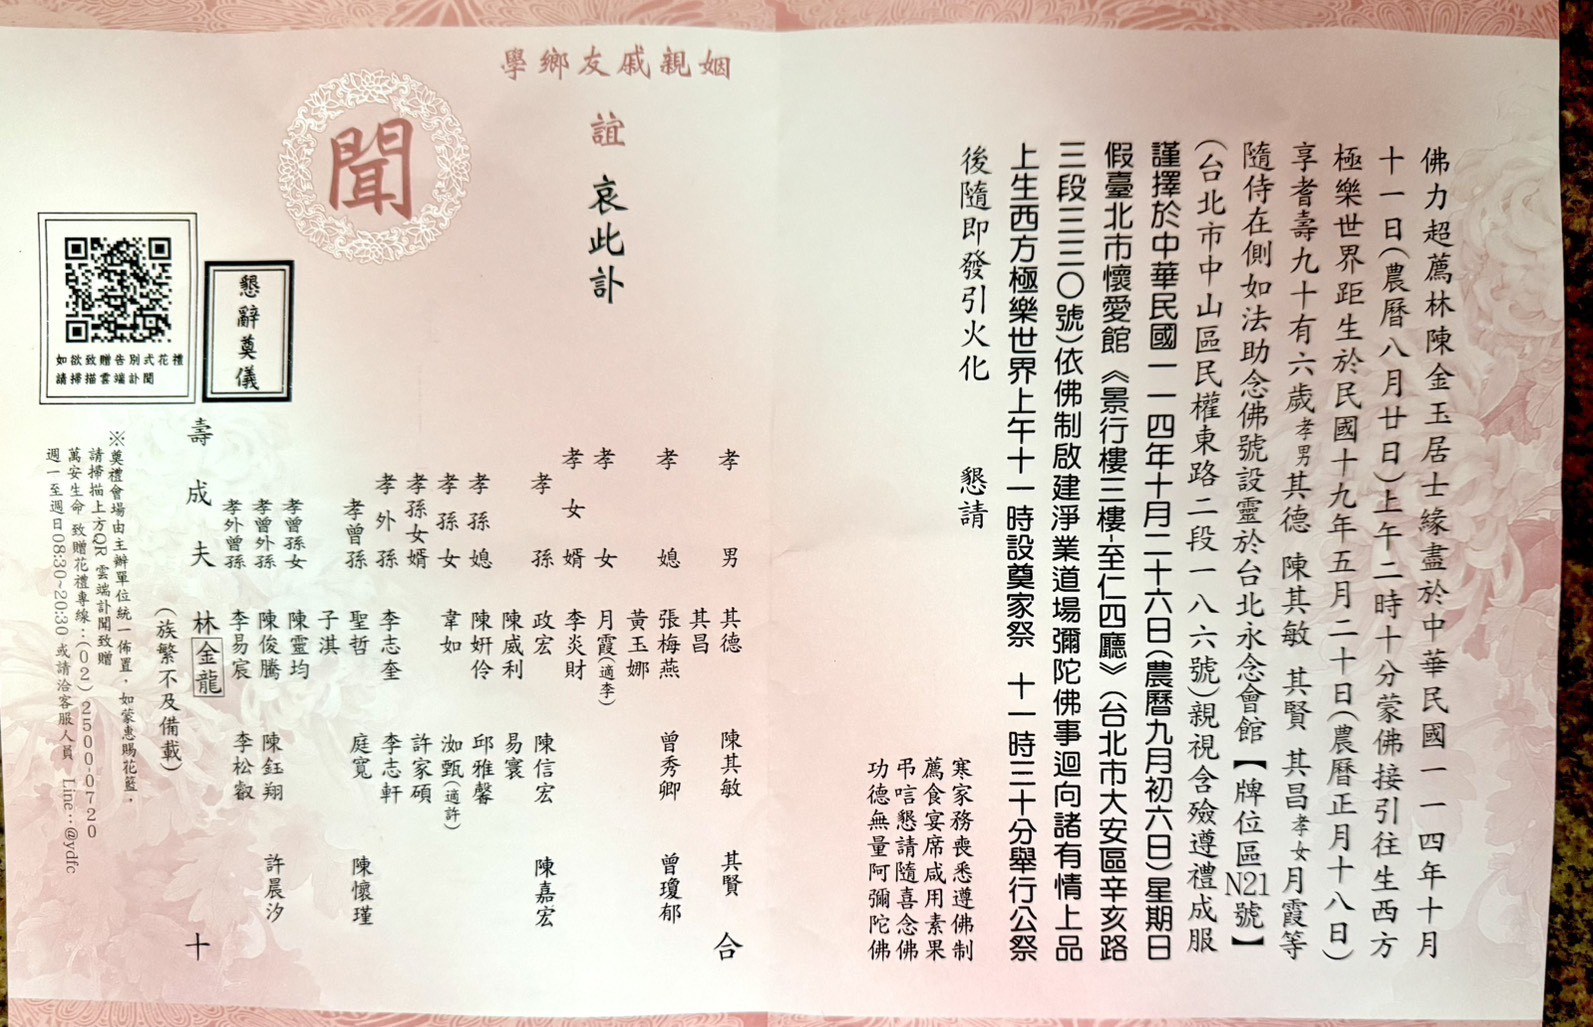 佛力超薦林陳金玉居士緣盡於中華民國一一四年十月
十一日(農曆八月廿日)上午二時十分蒙佛接引往生西方
極樂世界距生於民國十九年五月二十日(農曆正月十八日)
享耆壽九十有六歲孝男其德 陳其敏 其賢 其昌孝女月霞等
隨侍在側如法助念佛號設靈於台北永念會館【牌位區N21號】
(台北市中山區民權東路二段一八六號)親視含殮遵禮成服
謹擇於中華民國一一四年十月二十六日(農曆九月初六日)星期日
假臺北市懷愛館《景行樓三樓-至仁四廳》(台北市大安區辛亥路
三段三三〇號)依佛制啟建淨業道場彌陀佛事迴向諸有情上品
上生西方極樂世界上午十一時設奠家祭 十一時三十分舉行公祭
後隨即發引火化 懇請
寒家務喪悉遵佛制
薦食宴席咸用素果
弔唁懇請隨喜念佛
功德無量阿彌陀佛
姻親戚友鄉學
誼 哀此訃
聞
孝男 其德 陳其敏 其賢 合
其昌
孝媳 張梅燕 曾秀卿 曾瓊郁
黃玉娜
孝女 月霞(適李)
孝女婿 李炎財
孝孫 政宏 陳信宏 陳嘉宏
陳威利 易寰
孝孫媳 陳姸伶 邱雅馨
孝孫女 韋如 洳甄(適許)
孝孫女婿 許家碩
孝外孫 李志奎 李志軒
孝曾孫 聖哲 庭寬 陳懷瑾
子淇
孝曾孫女 陳靈均
孝曾外孫 陳俊騰 陳鈺翔 許晨汐
孝外曾孫 李易宸 李松叡
壽成夫 林金龍 十
(族繁不及備載)
懇辭奠儀
如欲致贈告別式花禮
請掃描雲端訃聞
※奠禮會場由主辦單位統一佈置，如蒙惠賜花籃，
請掃描上方QR 雲端訃聞致贈
萬安生命 致贈花禮專線：(02)2500-0720
週一至週日08:30~20:30 或請洽客服人員 Line：@ydfc